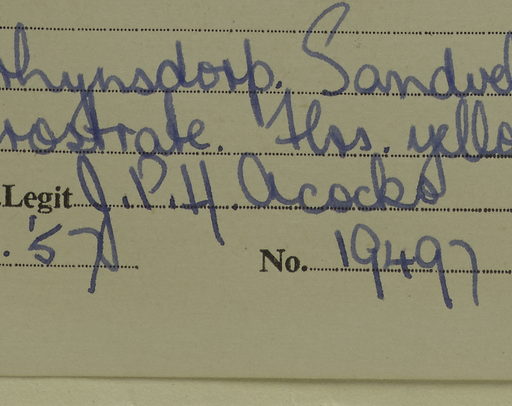 rhynsdorp. Sandve
rostrate. Flrs. yello
Legit J.P.H. Acocks
. '57 No. 19497